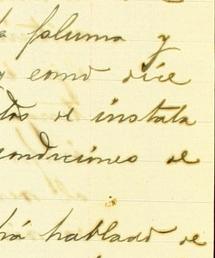 pluma y
y como dice
tos de instala
condiciones de
há hablado de